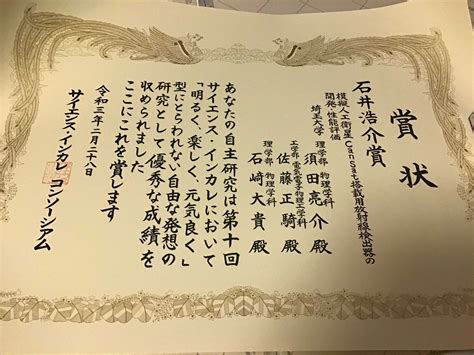 賞状
石井浩介賞
模擬人工衛星CanSat搭載用放射線検出器の
開発・性能評価
埼玉大学
理学部 物理学科
須田亮介殿
工学部 電気電子物理工学科
佐藤正騎殿
理学部 物理学科
石崎大貴殿
あなたの自主研究は第十回
サイエンス・インカレにおいて
「明るく、楽しく、元気良く」
型にとらわれない自由な発想の
研究として優秀な成績を
収められました
ここにこれを賞します
令和三年二月二十八日
サイエンス・インカレ コンソーシアム